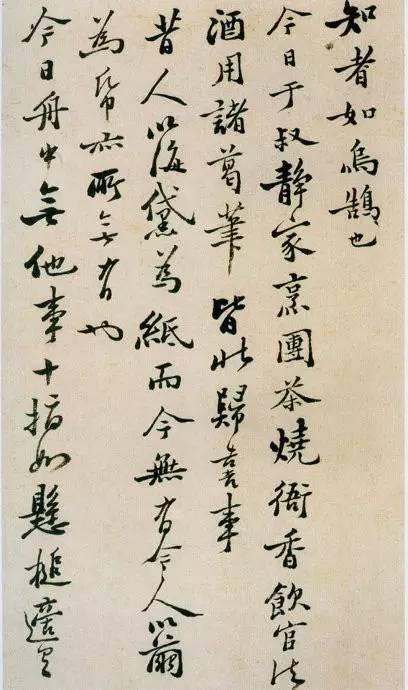 知者如烏鵲也
今日于叔靜家烹團茶燒衙香飲官法
酒用諸葛筆皆北歸喜事
昔人以海黛為紙而今無有今人以繭
為帋亦所無有也
今日舟中無他事十指如懸槌適有